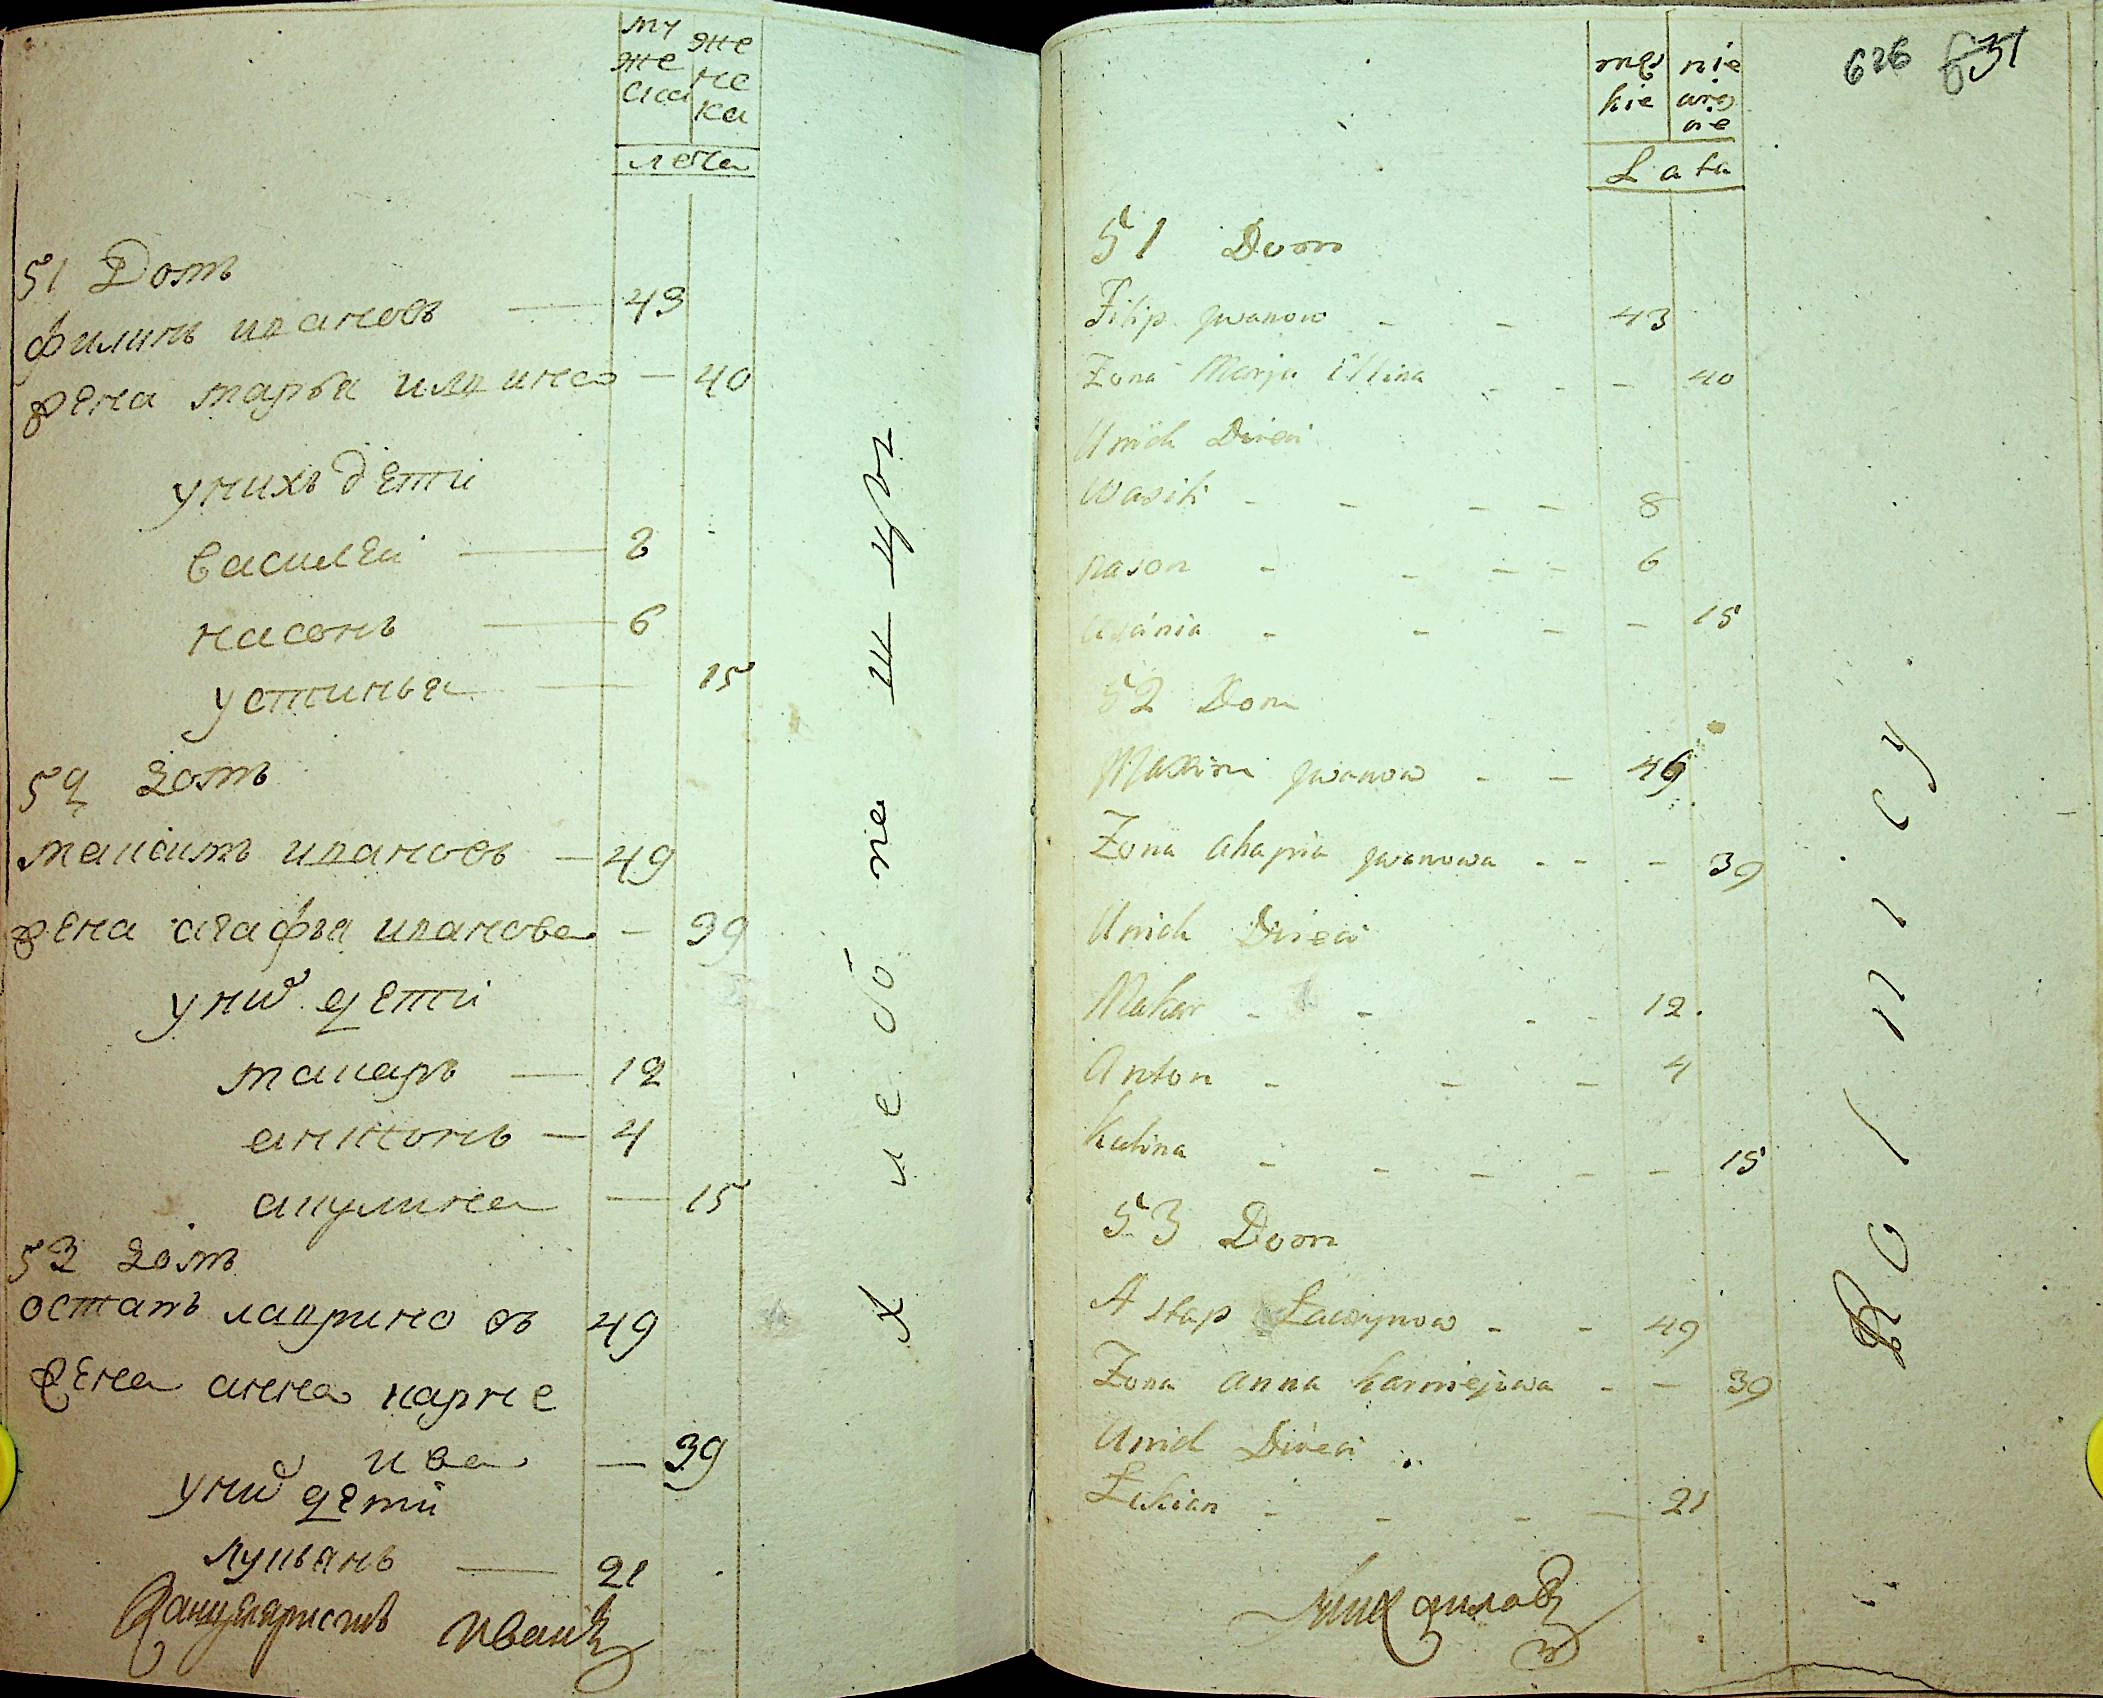 му же ска
же нс ка
лета
51 Домъ
филипъ ивановъ — 43
жена марья илвина — 40
унихъ дети
василей — 8
насонъ — 6
устинья — 15
52 домъ
максимъ ивановъ — 49
жена агафья иванова — 39
уних дети
макаръ — 12
антонъ — 4
акулина — 15
53 домъ
остапъ лавриновъ 49
жена анна карне
ива — 39
уних дети
лукьянъ — 21
Канцеляристъ Иван
хлебопашцы
626 631
męs kie
nie wieś nie
Lata
51 Dom
Filip Jwanow - - 43
Zona Marja Illina - - - 40
Unich Dzieci
Wasili - - - - 8
nason - - - - 6
Ustinia - - - - 15
52 Dom
Maxim Jwanow - - 49
Zona Ahapia Jwanowa - - - 39
Unich Dzieci
Makar - - - - 12.
Anton - - - 4
Kulina - - - - - 15
53 Dom
Astap Ławrynow - - 49
Zona anna karniejewa - - 39
Unich Dzieci
Łukian - - - - 21
Михайловъ
Rolnicy